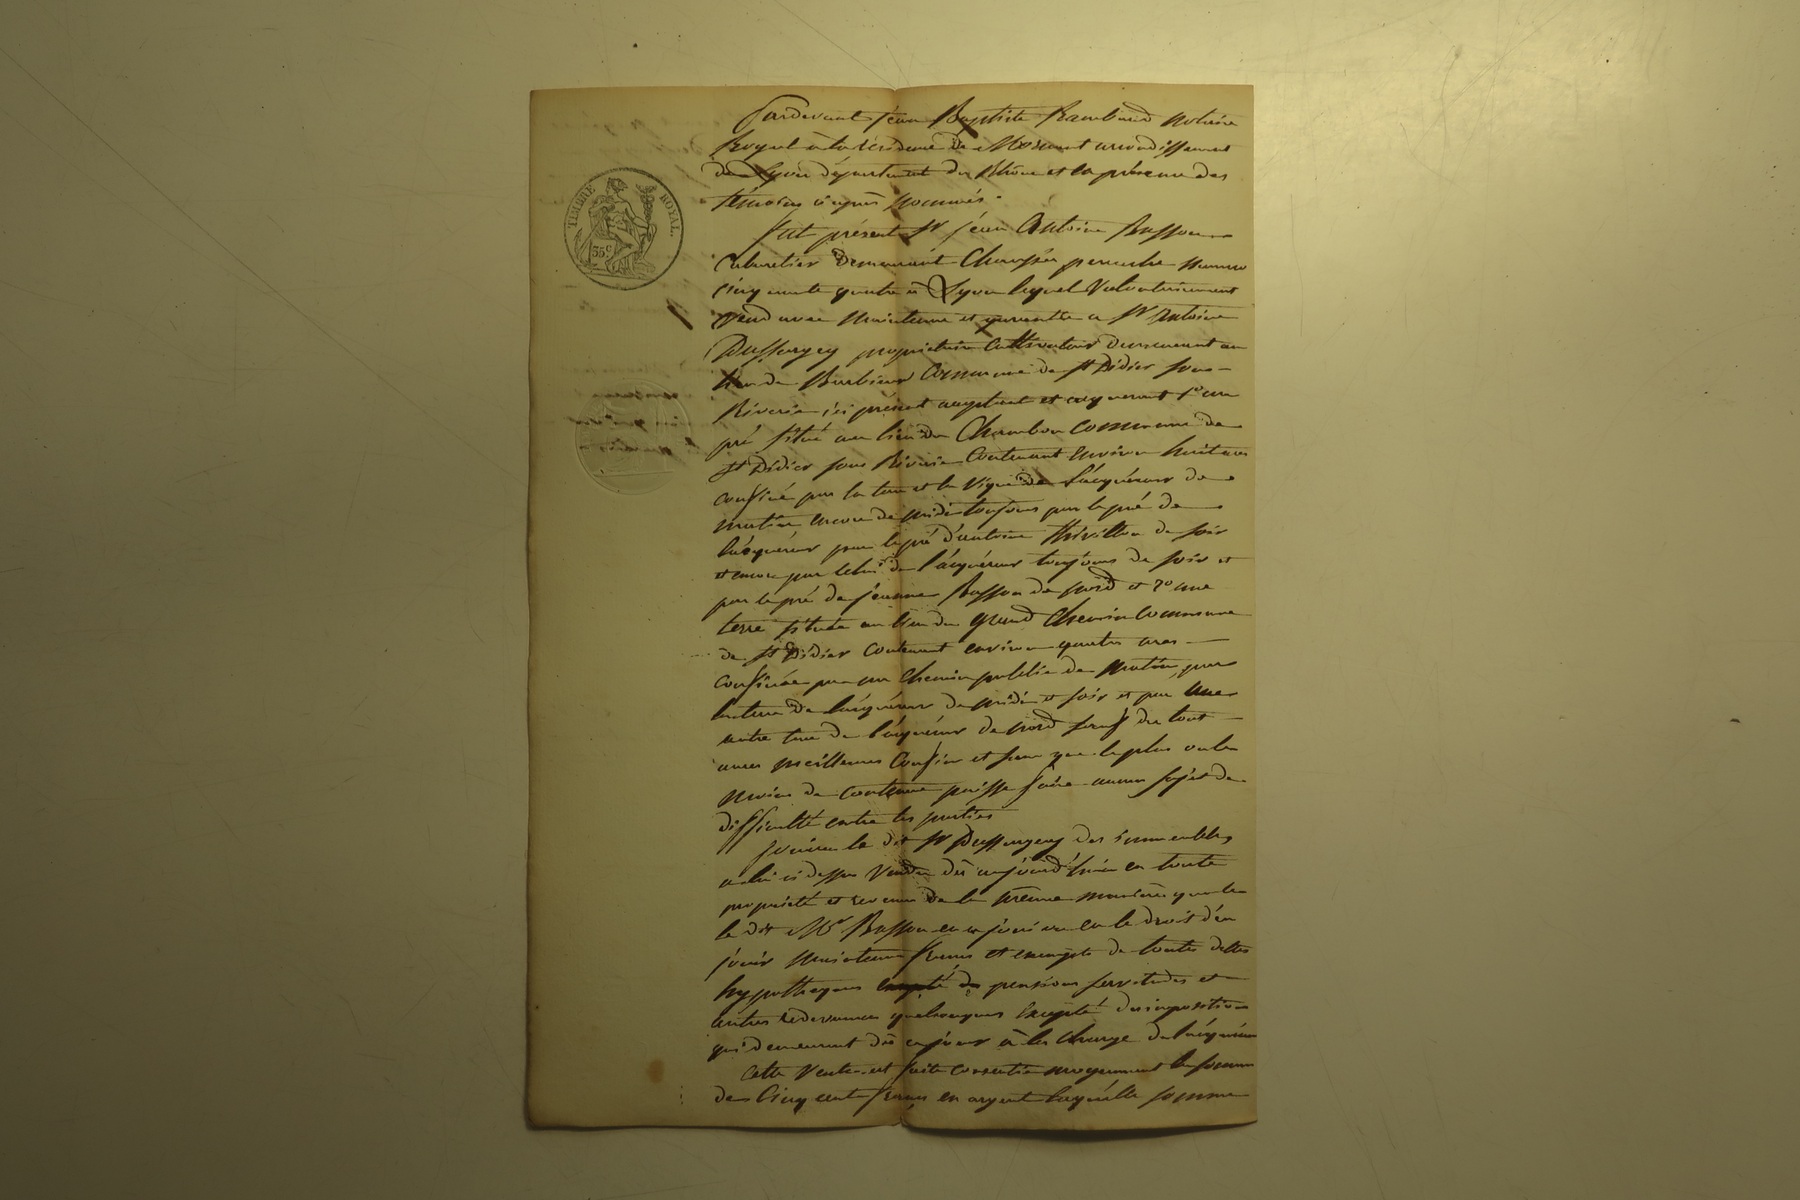 Pardevant Jean Baptiste Rambaud Notaire
Royal à la résidence de Mornant arrondissement
de Lyon département du Rhône et la présence des
témoins ci après nommés.
TIMBRE ROYAL.
35 c
Fut présent Sr Jean Antoine Basson
Cabaretier demeurant Chaussée perrache numero
cinquante quatre à Lyon lequel Volontairement
Vend avec Maintenue et garantie a Sr Antoine
Dussurgey propriétaire Cultivateur demeurant au
lieu de Commune de St Didier sous
Riverie ici présent acceptant et acquerant 1o un
pré situé au lieu du Chambon Commune de
St Didier sous Riverie Contenant environ huit ares
confiné par la terre et la Vigne de l'acquéreur de
matin encore de midi toujours par le pré de
l'acquéreur par le pré d'antoine Thévillon de soir
et encore par celui de l'acquéreur toujours de soir et
par le pré de jeanne Basson de nord et 2o une
terre située au lieu du grand Chemin Commune
de St Didier Contenant environ quatre ares
confinée par un Chemin public de Matin, par
la terre de l'acquéreur de midi et soir et par une
autre terre de l'acquéreur de nord sauf du tout
autres meilleures Confins et sans que le plus ou le
Moins de Contenue puisse faire aucun sujet de
difficulté entre les parties
Jouira le dit Sr Dussurgey des immeubles
a lui ci dessus Vendu dès aujourd'hui en toute
propriété et revenu de la même manière que le
le dit Mr Basson en a joui ou eu le droit d'en
jouir Maintenu francs et exempts de toutes dettes
hypotheques pensions servitudes et
autres redevances quelconques Excepté des impositions
qui demeurent dès ce jour à la charge de l'acquéreur
Cette Vente est faite Consentie moyennant la somme
de Cinq cent francs en argent laquelle somme